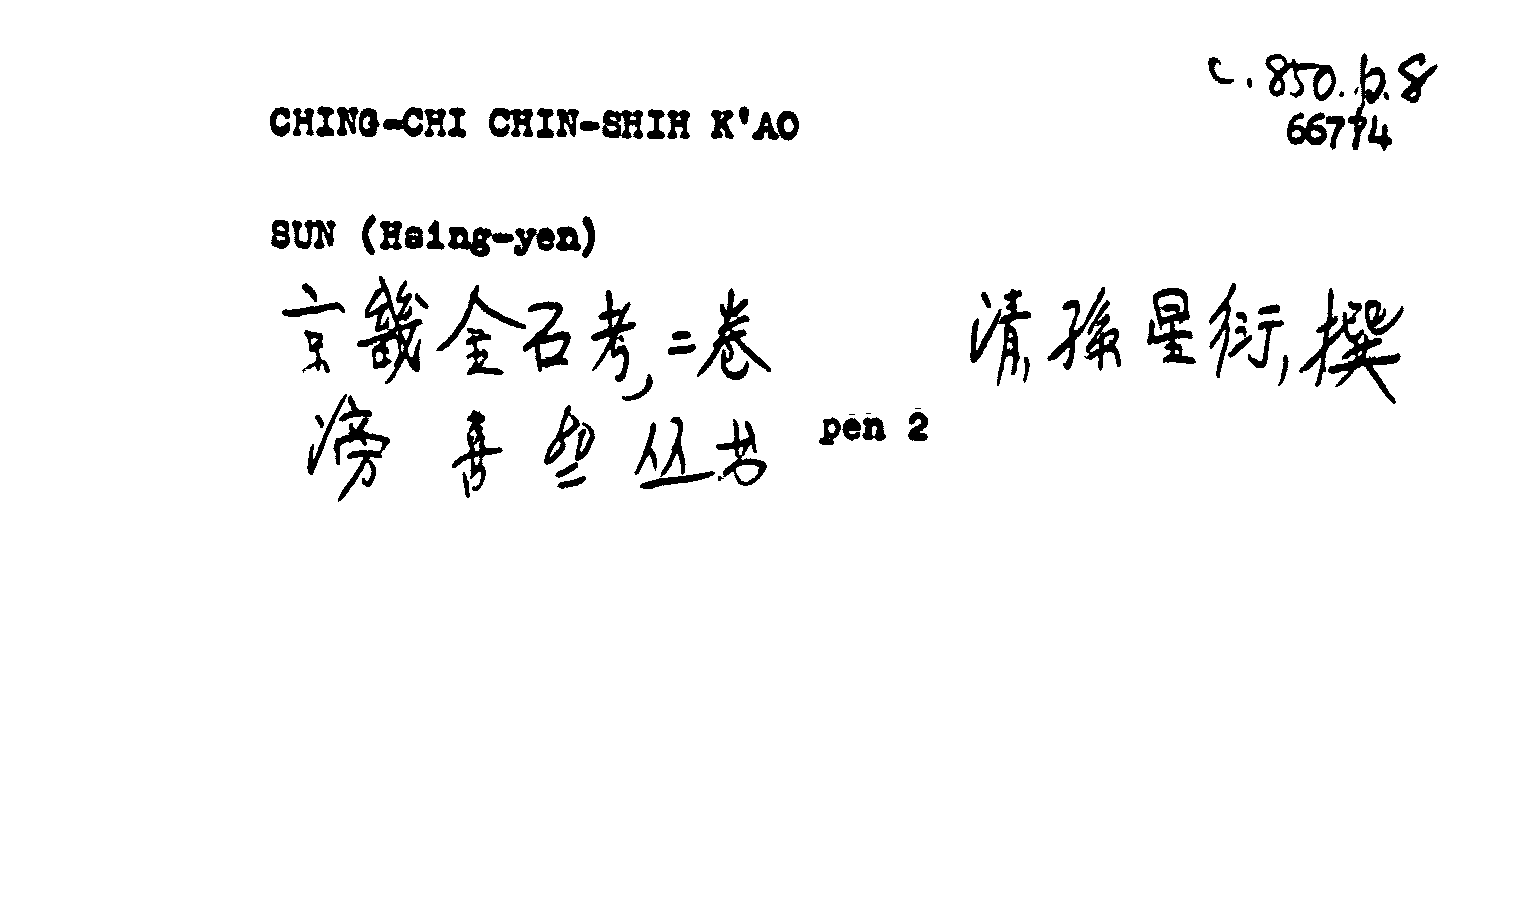 C.850.b.8
66774
CHING-CHI CHIN-SHIH K'AO
SUN (Hsing-yen)
京畿金石考,二卷 清孫星衍,撰
滂喜齋丛书 pen 2